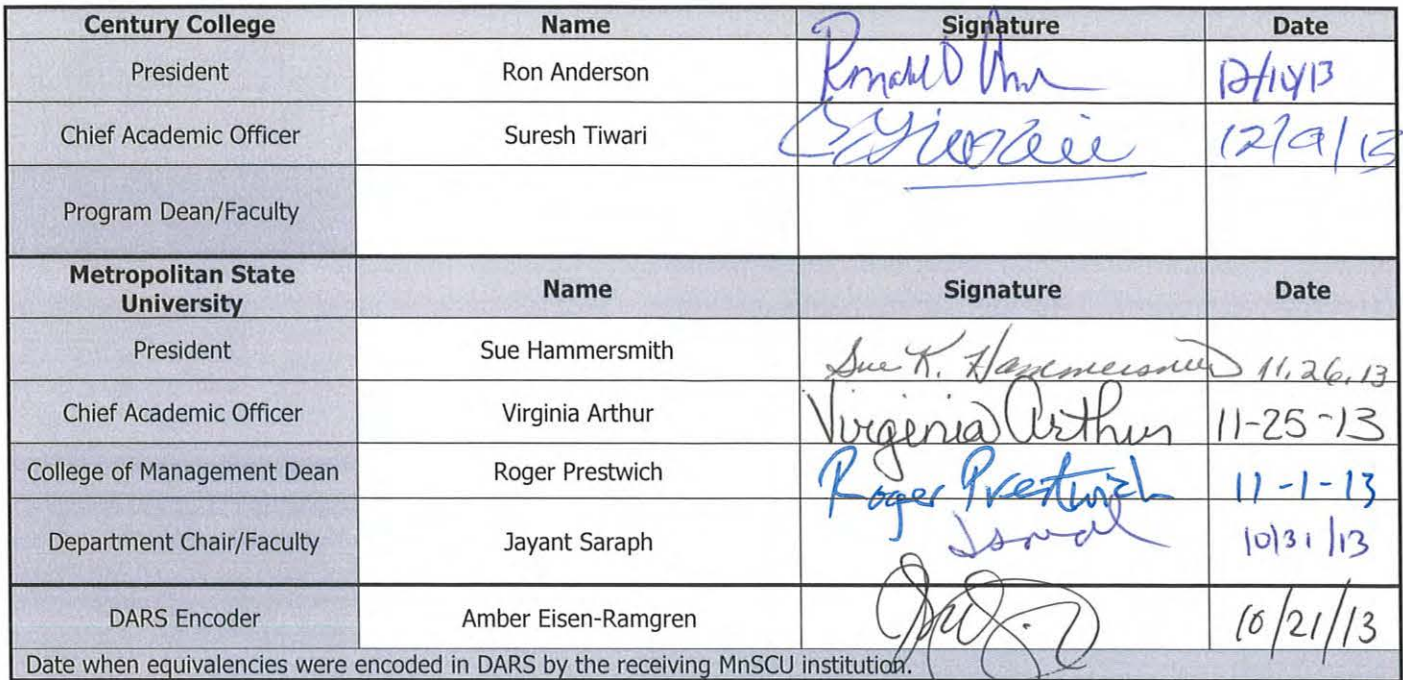 Century College Name Signature Date
President Ron Anderson Ronald D 12/10/13
Chief Academic Officer Suresh Tiwari 12/9/13
Program Dean/Faculty
Metropolitan State
University Name Signature Date
President Sue Hammersmith Sue K. Hammersmith 11.26.13
Chief Academic Officer Virginia Arthur Virginia Arthur 11-25-13
College of Management Dean Roger Prestwich Roger Prestwich 11-1-13
Department Chair/Faculty Jayant Saraph 10/31/13
DARS Encoder Amber Eisen-Ramgren 10/21/13
Date when equivalencies were encoded in DARS by the receiving MnSCU institution.